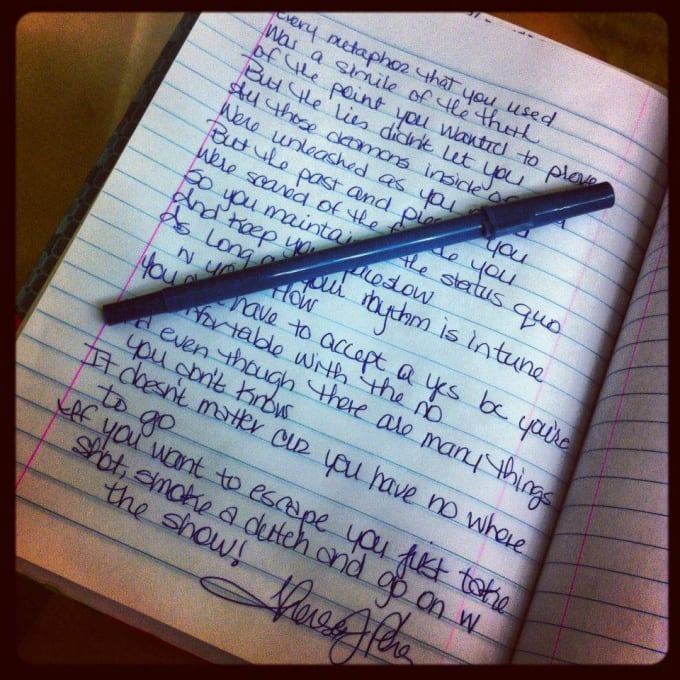 Every metaphor that you used
Was a simile of the truth
of the point you wanted to prove
But the lies didn't let you
All those demons inside of
Were unleashed as you
But the past and you
were scared of the you
So you maintain the status quo
and keep slow
as long a your rhythm is in tune
N flow
You have to accept a yes bc you're
comfortable with the no
even though there are many things
you don't know
IT doesn't matter cuz you have no where
to go
Iff you want to escape you just take
shot, smoke a dutch and go on w
the show!